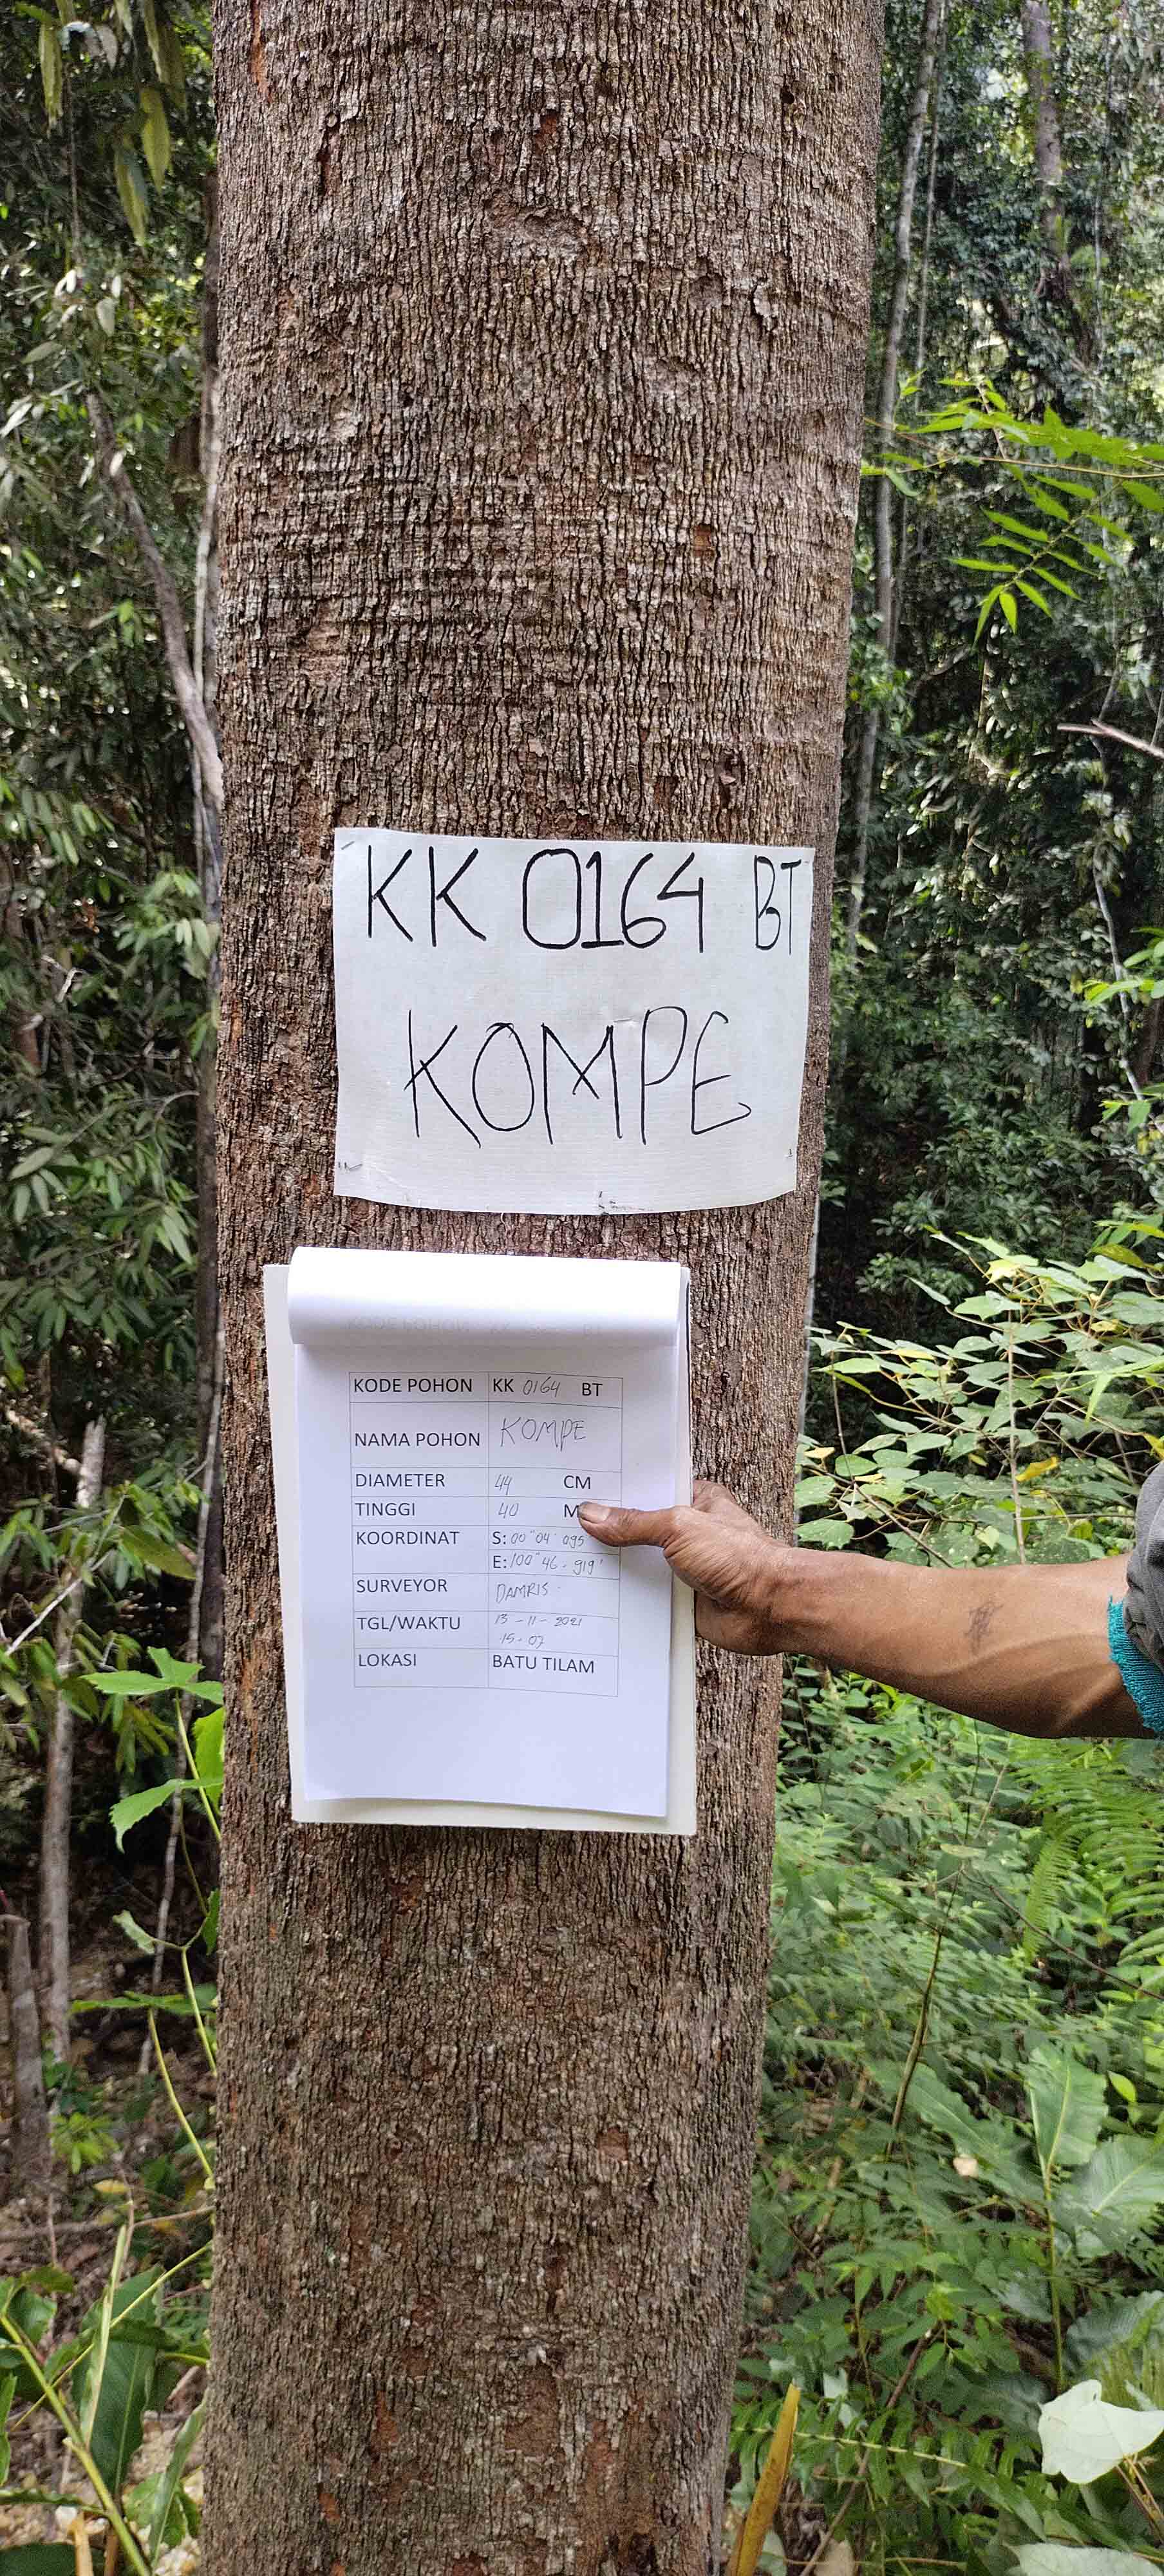 KK 0164 BT
KOMPE
KODE POHON KK 0164 BT
NAMA POHON KOMPE
DIAMETER 44 CM
TINGGI 40 M
KOORDINAT S: 00° 04' 095
E: 100° 46. 919'
SURVEYOR DAMRIS
TGL/WAKTU 13-11-2021
15.07
LOKASI BATU TILAM